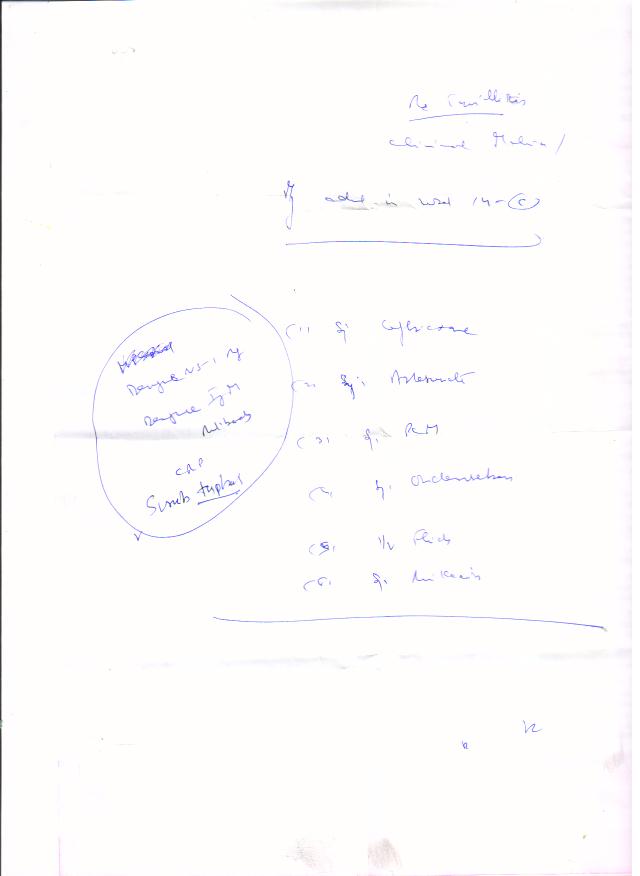 Re Tonsillitis
clinical Malaria /
Adv
admit in ward 14-(C)
(1) Inj. Ceftriaxone
(2) Inj. Artesunate
(3) Inj. PCM
(4) Inj. Ondansetron
(5) I/V Fluids
(6) Inj. Amikacin
Dengue NS-1 Ag
Dengue IgM
Antibody
CRP
Scrub typhus